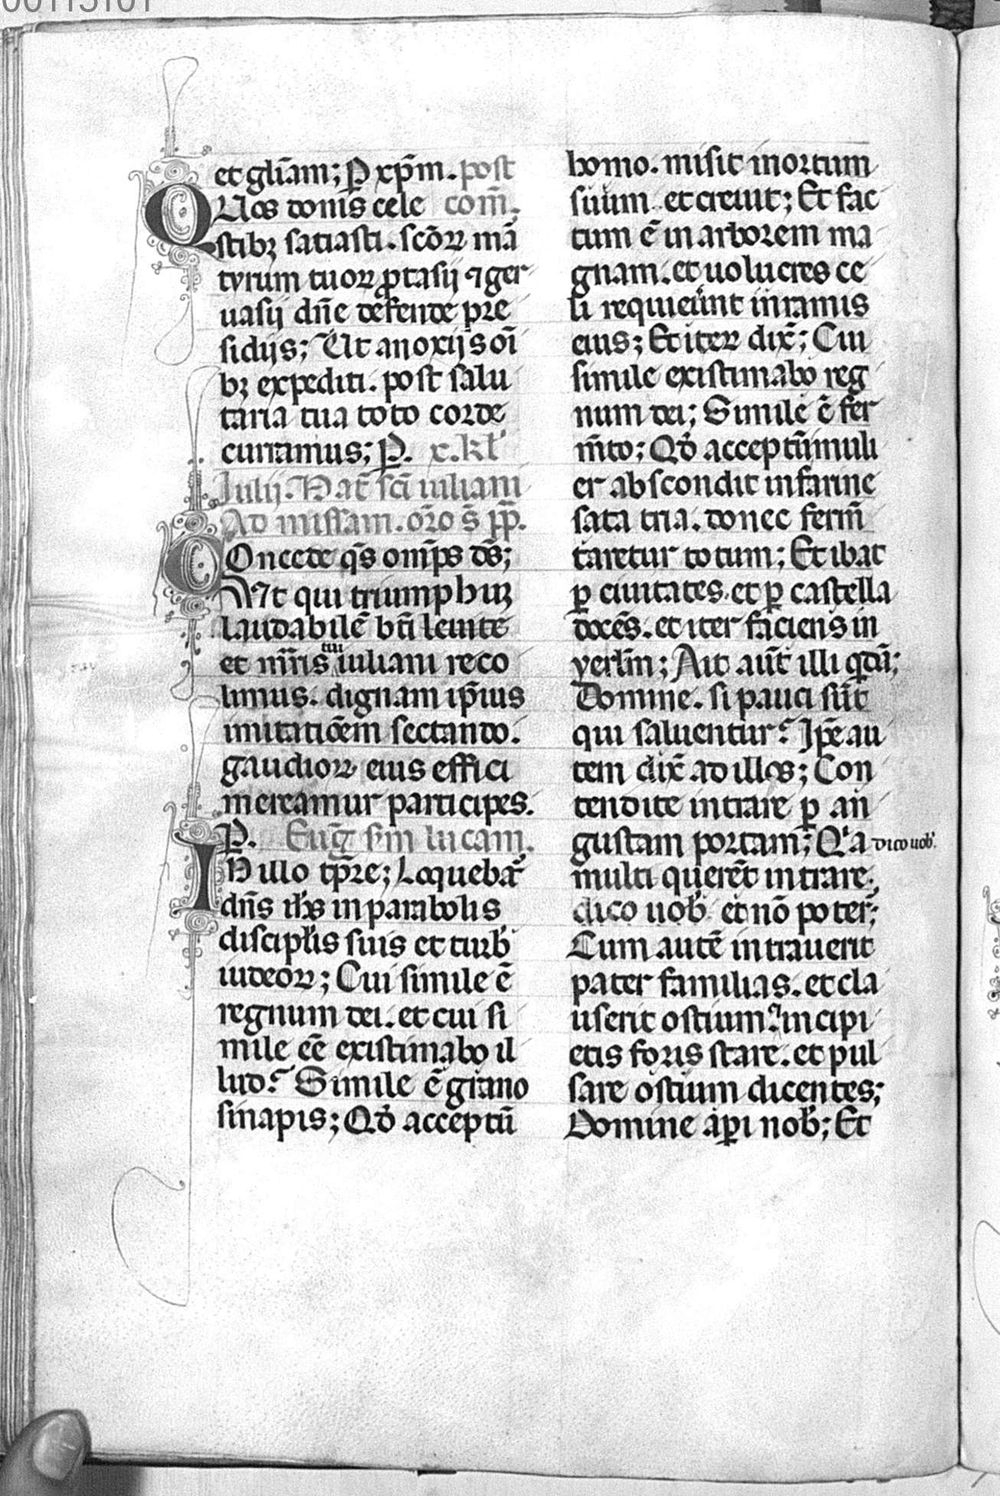 00113101
et gl̄iam; P xp̄m. post
QUos donis cele com̄.
stibꝫ satiasti. scōꝝ mā
tyrum tuoꝝ ꝓtasij ⁊ ger
uasij dn̄e defende pre
sidijs; Ut a noxijs oī
bꝫ expediti. post salu
taria tua toto corde
curramus; P. x. kl'
Julij. Nat̄ sc̄i iuliani
Ad missam. oro s̄ pp̄.
COncede q̄s om̄ps ds̄;
Ut qui triumphuꝫ
laudabilē bt̄i leuite
et mr̄ris tui iuliani reco
limus. dignam ip̄ius
imitatiōem sectando.
gaudioꝝ eius effici
mereamur participes.
P. Euḡ sm̄ lucam.
IN illo tp̄re; Loquebat̄
dn̄s ih̄s in parabolis
discipl̄is suis et turb̄
iudeoꝝ; Cui simile ē
regnum dei. et cui si
mile eē existimabo il
lud? Simile ē grano
sinapis; Qd̄ acceptū
homo. misit in ortum
suum. et creuit; Et fac
tum ē in arborem ma
gnam. et uolucres ce
li requieuer̄nt in ramis
eius; Et iteꝝ dix̄; Cui
simile existimabo reg
num dei; Simile ē fer
m̄to; Qd̄ acceptū muli
er abscondit in farine
sata tria. donec ferm̄
taretur totum; Et ibat
ꝑ ciuitates. et ꝑ castella
docēs. et iter faciens in
yerl̄m; Ait aūt illi qdā;
Domine. si pauci sūt
qui saluentur? Ip̄e au
tem dix̄ ad illos; Con
tendite intrare ꝑ an
gustam portam; Qͥa dico uob̄.
multi querēt intrare;
dico uob̄ et nō poter̄;
Cum autē intrauerit
pater familias. et cla
userit ostium. incipi
etis foris stare. et pul
sare ostium dicentes;
Domine aꝑi nob̄; Et